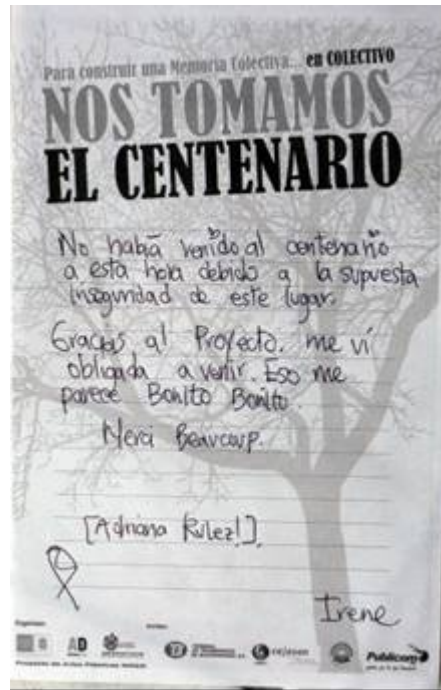 Para construir una Memoria Colectiva... en COLECTIVO
NOS TOMAMOS
EL CENTENARIO
No había venido al centenario
a esta hora debido a la supuesta
inseguridad de este lugar.
Gracias al Proyecto. me ví
obligada a venir. Eso me
parece Bonito Bonito.
Merci Beaucoup.
[Adriana Rulez!].
Irene
AD
Publicom